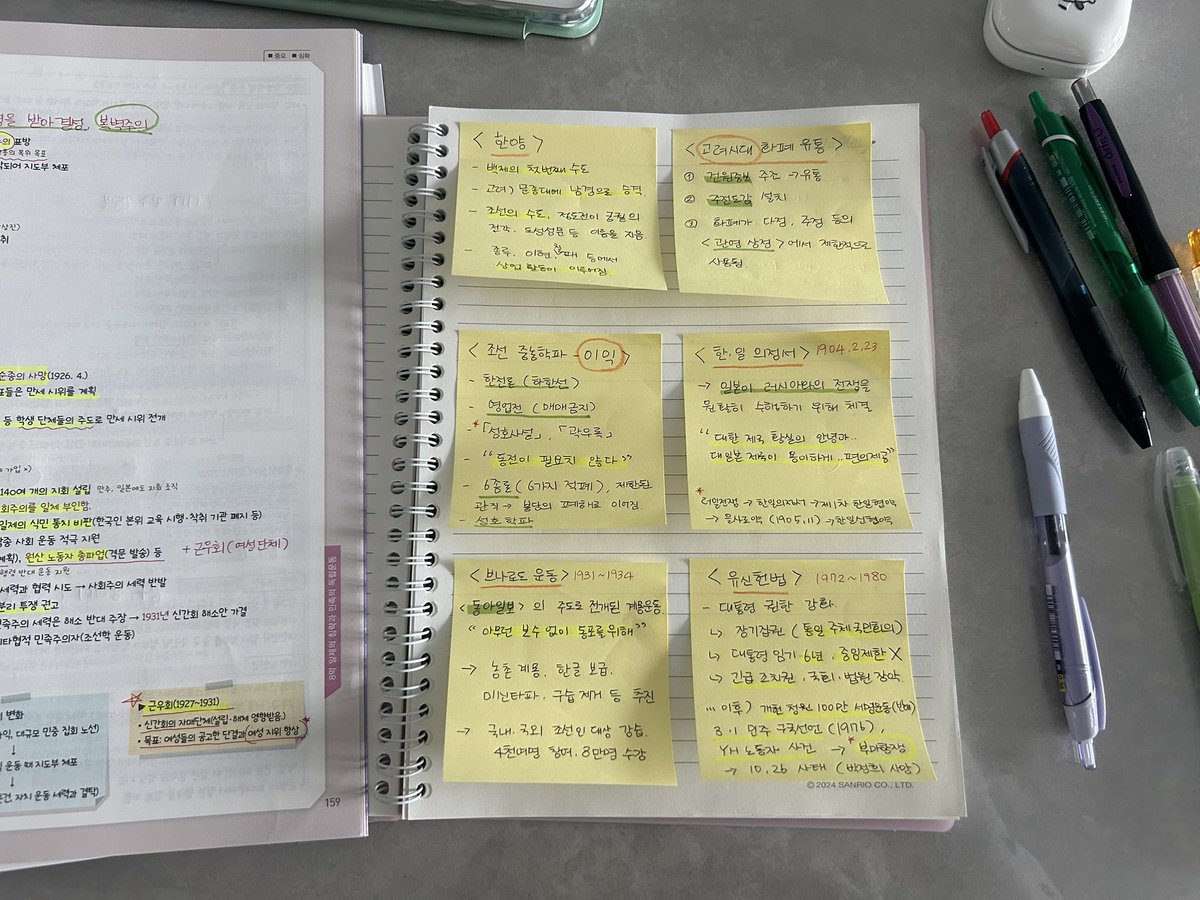 ■ 중요 ■ 심화
받아 결성, 보변주의
표방
복위 목표
되어 지도부 체포
순종의 사망(1926. 4.)
들은 만세 시위를 계획
등 학생 단체들의 주도로 만세 시위 전개
가입 x)
140여 개의 지회 설립 만주, 일본에도 지회 조직
회주의를 일체 부인함.
일제의 식민 통치 비판(한국인 본위 교육 시행·착취 기관 폐지 등)
중 사회 운동 적극 지원
계획), 원산 노동자 총파업(격문 발송) 등
+ 근우회(여성단체)
령 반대 운동 지원
세력과 협력 시도 → 사회주의 세력 반발
분리 투쟁 권고
족주의 세력은 해소 반대 주장 → 1931년 신간회 해소안 가결
타협적 민족주의자(조선학 운동)
의 변화
익, 대규모 민중 집회 노선)
↓
일 운동 때 지도부 체포
↓
자치 운동 세력과 결탁)
▶ 근우회(1927~1931)
• 신간회의 자매단체(설립·해체 영향받음.)
• 목표: 여성들의 공고한 단결과 여성 지위 향상
8막 일제의 침략과 민족의 독립운동
159
< 한양 >
- 백제의 첫번째 수도
- 고려) 문종대에 남경으로 승격.
- 조선의 수도, 정도전이 궁궐의
전각, 도성성문 등 이름을 지음
- 종루, 이현, 칠패 등에서
상업 활동이 이루어짐.
< 고려시대 화폐 유통 >
① 건원중보 주조 → 유통
② 주전도감 설치
③ 화폐가 다점, 주점 등의
< 관영 상점 > 에서 제한적으로
사용됨.
< 조선 중농학파 - 이익 >
- 한전론 (하한선)
- 영업전 (매매금지)
- *「성호사설」, 「곽우록」
- “동전이 필요치 않다”
- 6좀론 (6가지 적폐), 제한된
관직 → 붕당의 폐해로 이어짐.
- 성호 학파
< 한·일 의정서 > 1904.2.23
→ 일본이 러시아와의 전쟁을
원활히 수행하기 위해 체결
“대한 제국 황실의 안녕과..
대일본 제국이 용이하게..편의제공”
* 러일전쟁 → 한일의정서 → 제1차 한일협약
→ 을사조약 (1905.11) → 한일신협약
< 브나로드 운동 > 1931~1934
< 동아일보 > 의 주도로 전개된 계몽운동
“아무런 보수 없이 동포를 위해”
→ 농촌 계몽, 한글 보급,
미신타파, 구습 제거 등 추진
→ 국내, 국외 조선인 대상 강습,
4천여명 참여, 8만명 수강
< 유신헌법 > 1972~1980
- 대통령 권한 강화.
↳ 장기집권 (통일 주체 국민회의)
↳ 대통령 임기 6년, 중임제한 X
↳ 긴급 조치권, 국회·법원 장악
... 이후) 개헌 청원 100만 서명운동(반대)
3·1 민주 구국선언 (1976),
YH 노동자 사건 → *부마항쟁
→ 10.26 사태 (박정희 사망)
© 2024 SANRIO CO., LTD.